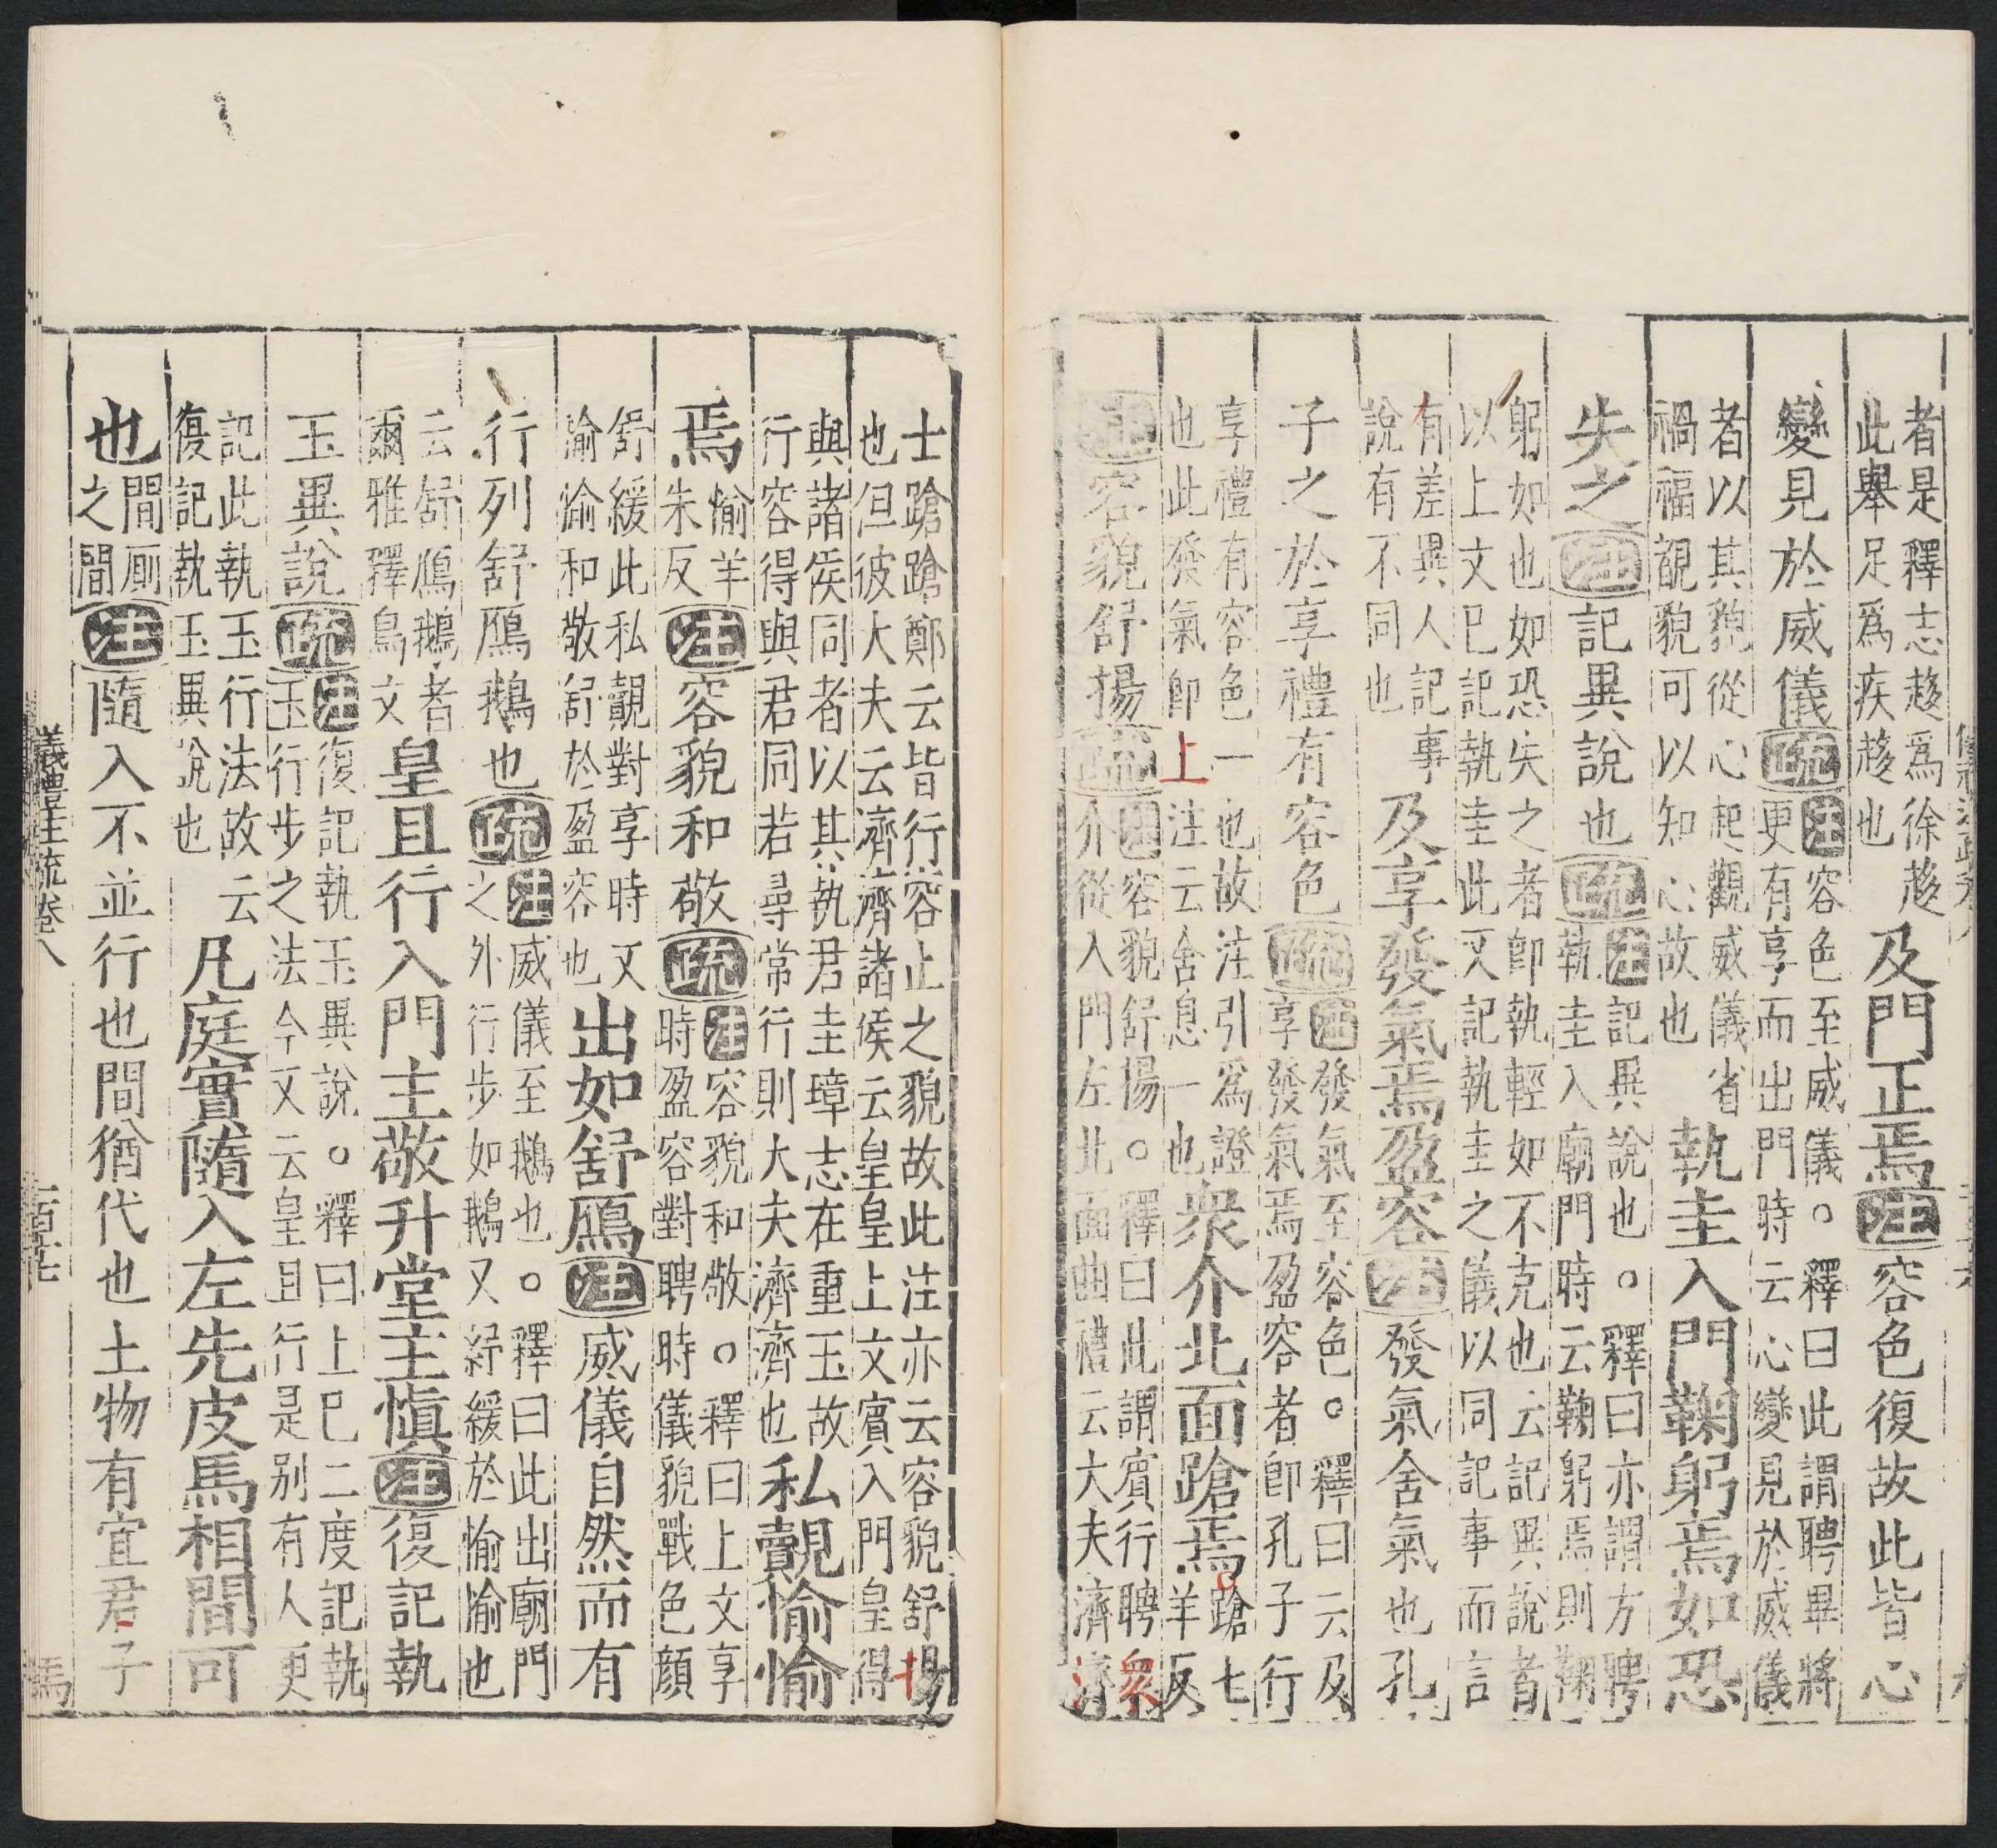 者是釋志趍爲徐趍此舉足爲疾趍也及門正焉注容色復故此皆心
變見於威儀疏注容色至威儀。釋曰此謂聘畢將更有享而出門時云心變見於威儀
者以其貌從心起觀威儀省禍福覩貌可以知心故也執圭入門鞠躬焉如恐
失之注記異說也疏注記異說也。釋曰亦謂方聘執圭入廟門時云鞠躬焉則鞠
躬如也如恐失之者卽執輕如不克也云記異說者以上文已記執圭此又記執圭之儀以同記事而言
有差異人記事說有不同也及享發氣焉盈容注發氣舍氣也孔
子之於享禮有容色疏注發氣至容色。釋曰云及享發氣焉盈容者卽孔子行
享禮有容色一也故注引爲證也此發氣卽上注云舍息一也衆介北面蹌焉。蹌七羊反
注容貌舒揚疏注容貌舒揚。釋曰此謂賓行聘衆介從入門左北面曲禮云大夫濟濟
士蹌蹌鄭云皆行容止之貌故此注亦云容貌舒揚也但彼大夫云濟濟諸侯云皇皇上文賓入門皇得
與諸侯同者以其執君圭璋志在重玉故行容得與君同若尋常行則大夫濟濟也私覿愉愉
焉愉羊朱反注容貌和敬疏注容貌和敬。釋曰上文享時盈容對聘時儀貌戰色顏
舒緩此私覿對享時又愉愉和敬舒於盈容也出如舒鴈注威儀自然而有
行列舒鴈鵝也疏注威儀至鵝也。釋曰此出廟門之外行步如鵝又紓緩於愉愉也
云舒鴈鵝者爾雅釋鳥文皇且行入門主敬升堂主愼注復記執
玉異說疏注復記執玉異說。釋曰上已二度記執玉行步之法今又云皇且行是别有人更
記此執玉行法故云復記執玉異說也凡庭實隨入左先皮馬相間可
也間厠之間注隨入不並行也間猶代也土物有宜君子
儀禮註疏卷八